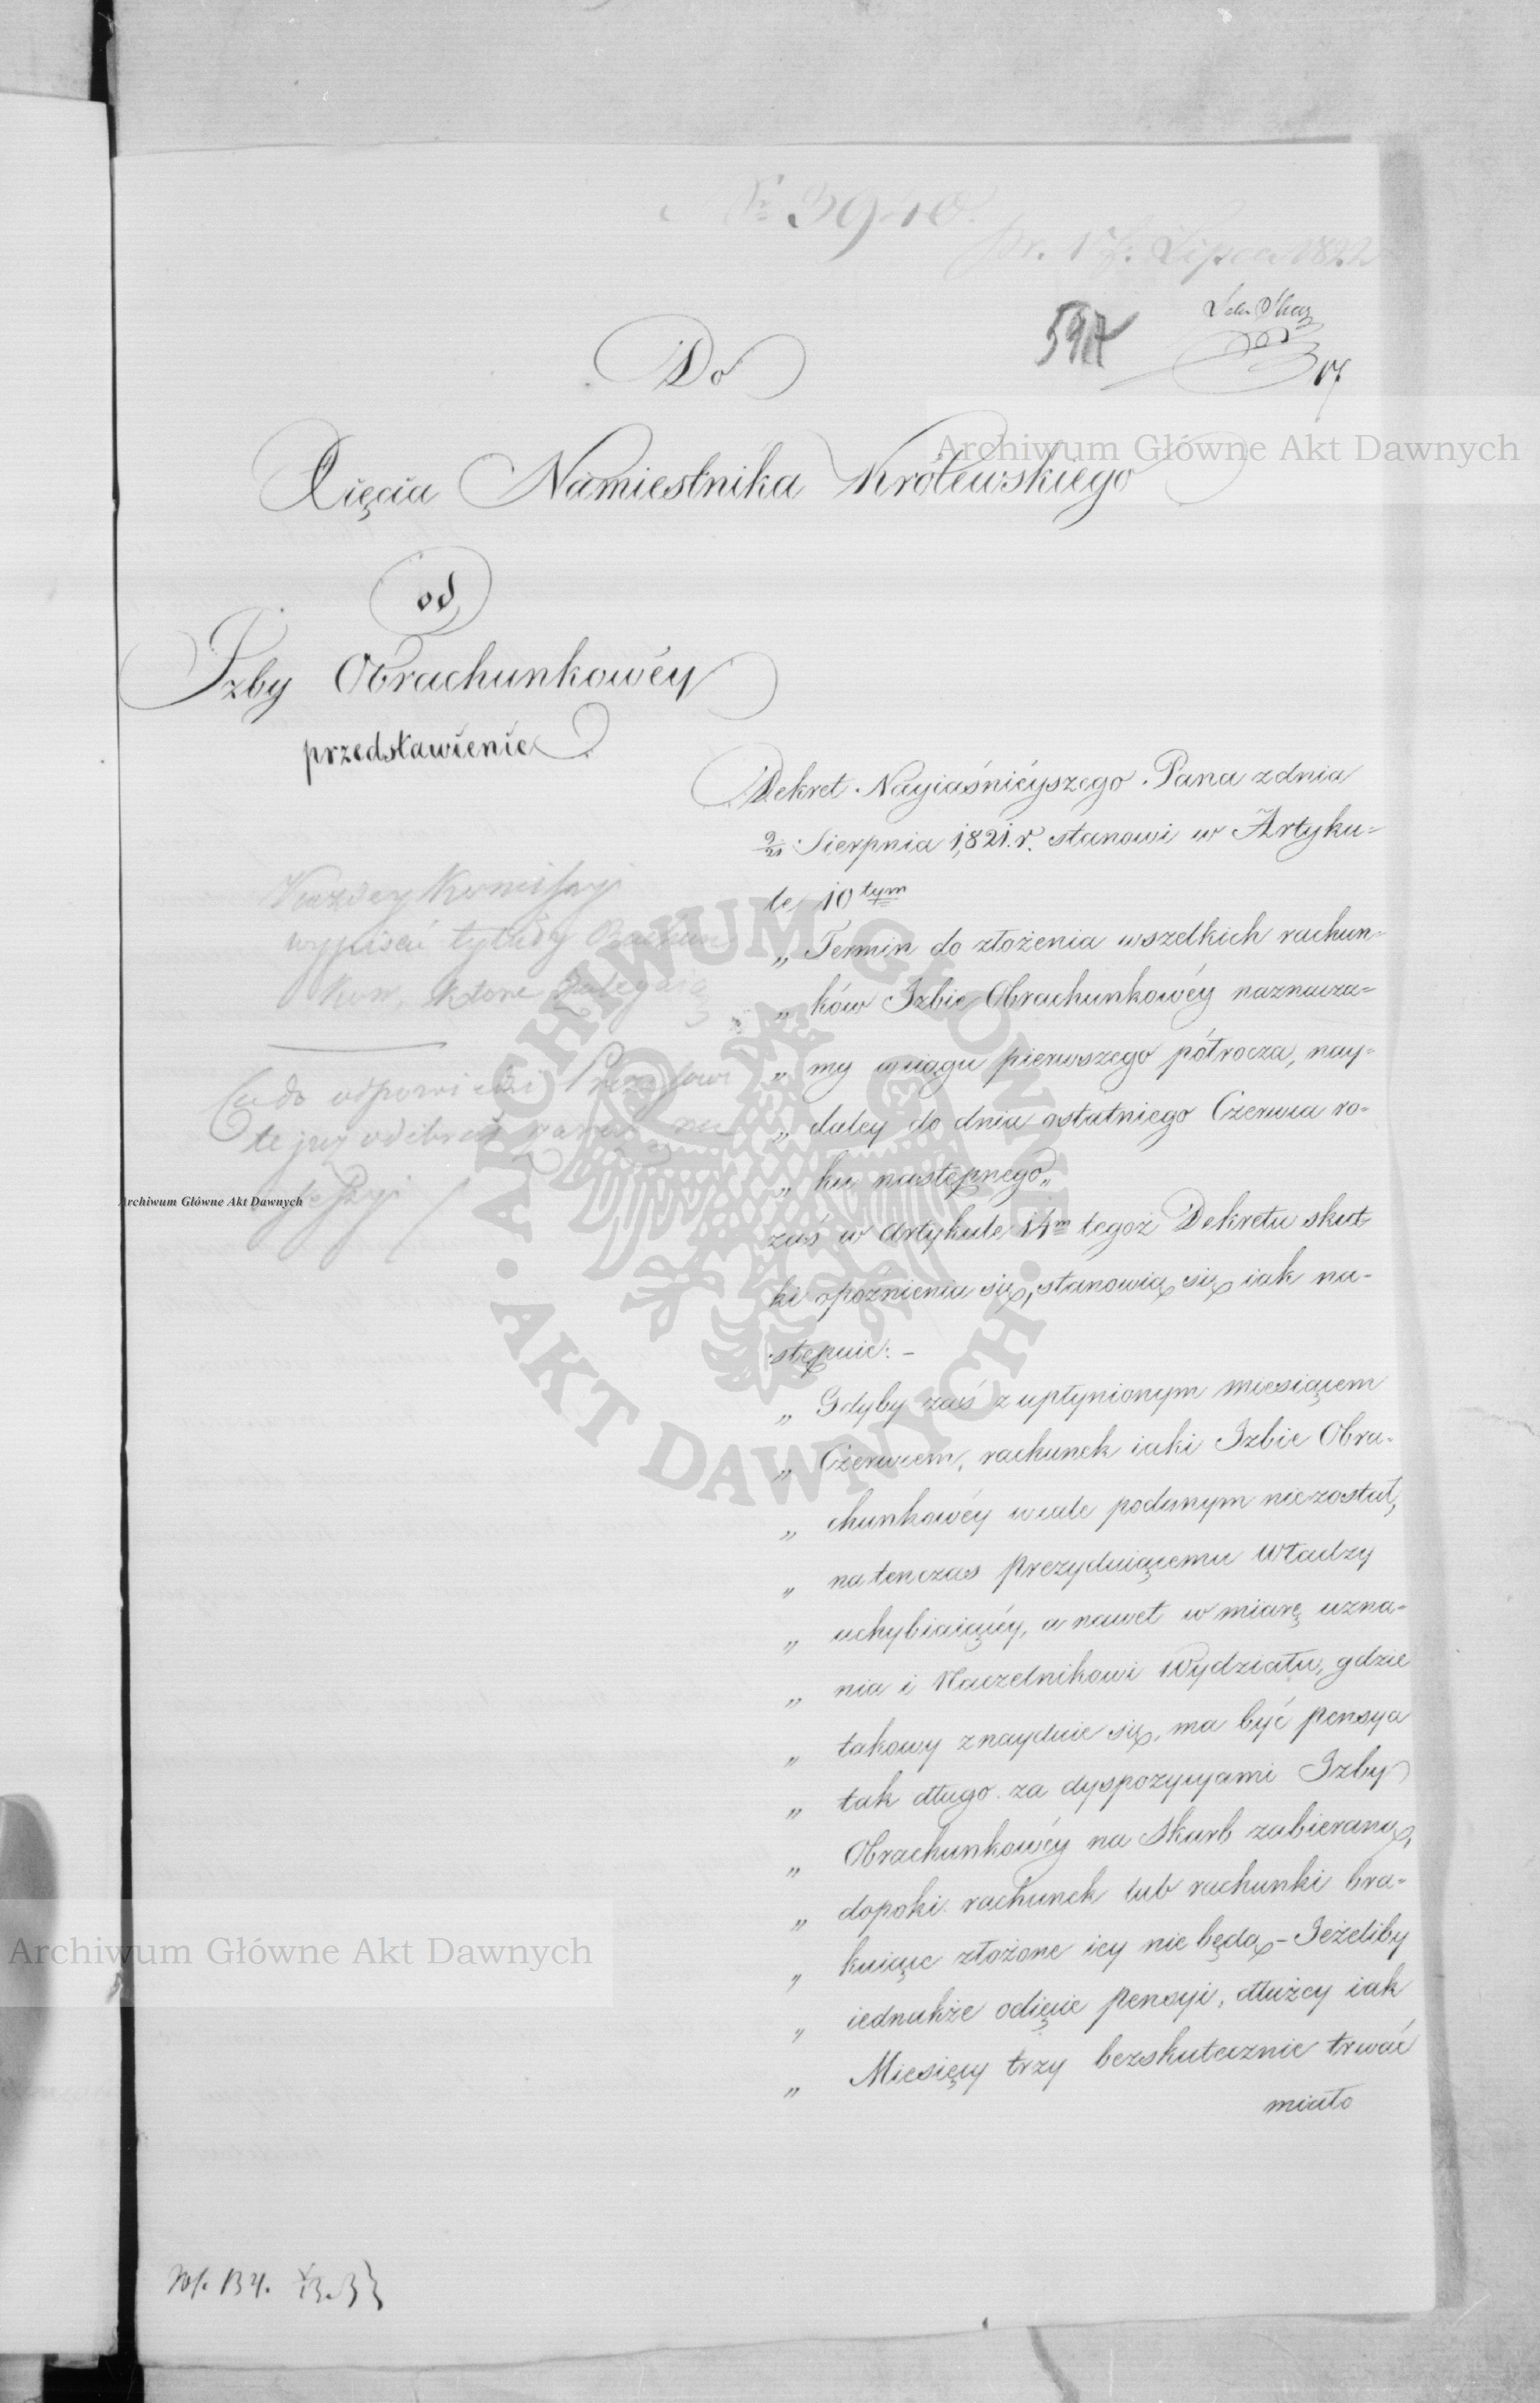 Nr 5940.
pr. 17. Lipca 1822
594
17
Do
Xięcia Namiestnika Królewskiego
od
Izby Obrachunkowéy
przedstawienie
Dekret Nayiaśniéyszego Pana z dnia
9/21 Sierpnia 1821. r. stanowi w Artyku-
le 10tym
„ Termin do złożenia wszelkich rachun-
„ ków Izbie Obrachunkowéy naznacza-
„ my w ciągu pierwszego półrocza, nay-
„ daley do dnia ostatniego Czerwca ro-
„ ku następnego„
zaś w artykule 14m tegoż Dekretu skut-
ki opóźnienia się, stanowią się iak na-
stępuie: -
„ Gdyby zaś z upłynionym miesiącem
„ Czerwcem, rachunek iaki Izbie Obra-
„ chunkowéy wcale podanym nie został,
„ natenczas prezyduiącemu Władzy
„ uchybiaiącéy, a nawet w miarę uzna-
„ nia i Naczelnikowi Wydziału, gdzie
„ takowy znayduie się, ma być pensya
„ tak długo za dyspozycyami Izby
„ Obrachunkowéy na Skarb zabieraną,
„ dopóki rachunek lub rachunki bra-
„ kuiące złożone iey nie będą - Jeżeliby
„ iednakże odięcie pensyi, dłużey iak
„ Miesięcy trzy bezskutecznie trwać
miało
Każdey Kommissyi
wypisać tytuły Rachun
ków, które zalegaią
Co do odpowiedzi Prezesowi
Archiwum Główne Akt Dawnych
Archiwum Główne Akt Dawnych
Archiwum Główne Akt Dawnych
· ARCHIWUM GŁÓWNE · AKT DAWNYCH